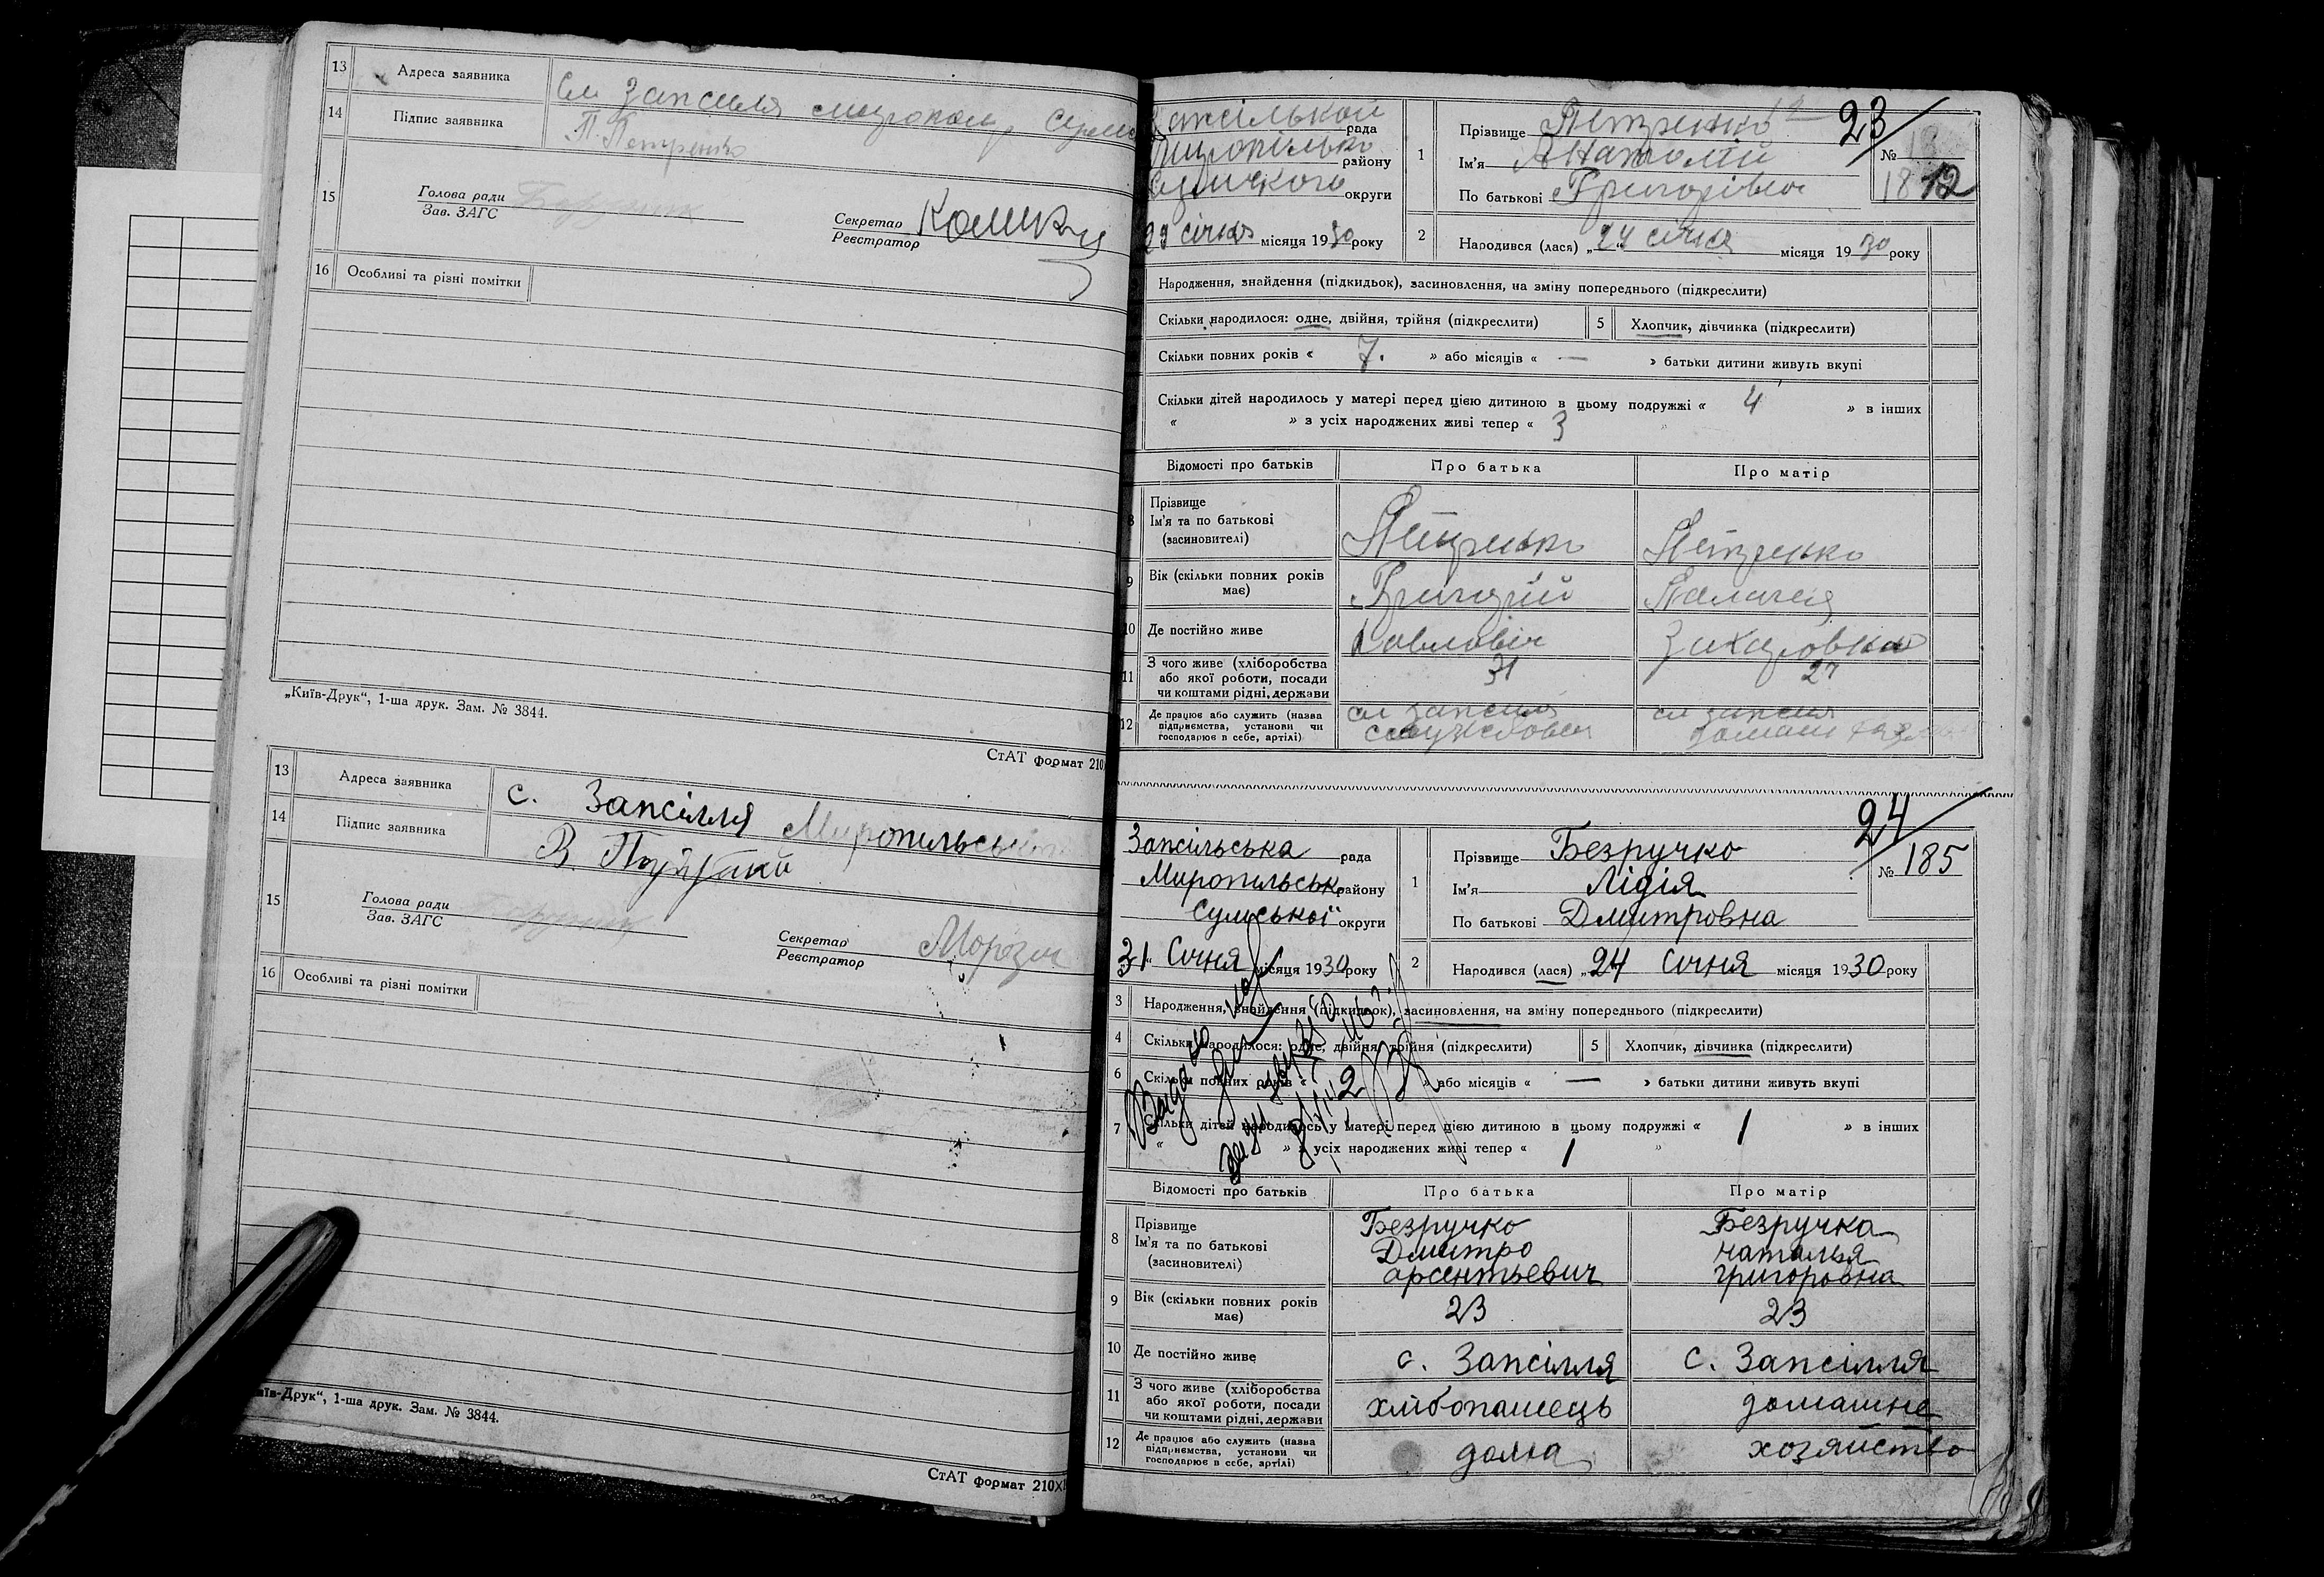 13 Адреса заявника сл Запсилля
14 Підпис заявника П. Петренко
15 Голова ради
Зав. ЗАГС
Секретар
Реєстратор
16 Особливі та різні помітки
„Київ-Друк“, 1-ша друк. Зам. № 3844.
СтАТ формат 210
13 Адреса заявника с. Запсілля Миропильськ
14 Підпис заявника В.
15 Голова ради
Зав. ЗАГС
Секретар Мороз
Реєстратор
16 Особливі та різні помітки
їв-Друк“, 1-ша друк. Зам. № 3844.
СтАТ формат 210×
23
рада
району
округи
29 січня місяця 1930 року
1 Прізвище Петренко
Ім'я Анатолій
По батькові Григорівич
№
2 Народився (лася) „24 січня місяця 1930 року
Народження, знайдення (підкидьок), засиновлення, на зміну попереднього (підкреслити)
Скільки народилося: одне, двійня, трійня (підкреслити) 5 Хлопчик, дівчинка (підкреслити)
Скільки повних років « 7. » або місяців « — » батьки дитини живуть вкупі
Скільки дітей народилось у матері перед цією дитиною в цьому подружжі « 4 » в інших
« » з усіх народжених живі тепер « 3 »
Відомості про батьків Про батька Про матір
8 Прізвище
Ім'я та по батькові
(засиновителі) Петренко Петренко
9 Вік (скільки повних років
має) Григорій Палагея
10 Де постійно живе Павловіч Захаровна
11 З чого живе (хліборобства
або якої роботи, посади
чи коштами рідні, держави 31 27
12 Де працює або служить (назва
підприємства, установи чи
господарює в себе, артілі) сл Запсиля сл Запсиля
24
Запсільська рада
Миропильськ району
Сумської округи
31 Січня місяця 1930 року
1 Прізвище Безручко
Ім'я Лідія
По батькові Дмитровна
№ 185
2 Народився (лася) „24 Січня місяця 1930 року
3 Народження, знайдення (підкидьок), засиновлення, на зміну попереднього (підкреслити)
4 Скільки народилося: одне, двійня, трійня (підкреслити) 5 Хлопчик, дівчинка (підкреслити)
6 Скільки повних років « 2 » або місяців « — » батьки дитини живуть вкупі
7 Скільки дітей народилось у матері перед цією дитиною в цьому подружжі « 1 » в інших
« » з усіх народжених живі тепер « 1 »
Відомості про батьків Про батька Про матір
8 Прізвище Безручко Безручка
Ім'я та по батькові Дмитро наталья
(засиновителі) арсентьевич григоровна
9 Вік (скільки повних років
має) 23 23
10 Де постійно живе с. Запсілля с. Запсілля
11 З чого живе (хліборобства
або якої роботи, посади
чи коштами рідні, держави хлібопашець домашне
12 Де працює або служить (назва
підприємства, установи чи
господарює в себе, артілі) дома хозяйство